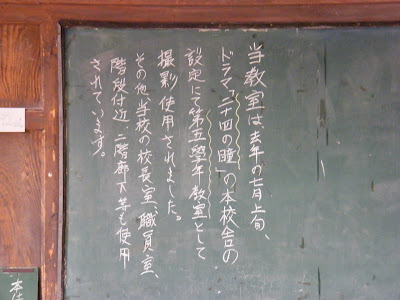 当教室は去年の七月上旬、
ドラマ「二十四の瞳」の本校舎の
設定にて第五學年教室として
撮影使用されました。
その他当校の校長室、職員室、
階段付近、二階廊下等も使用
されています。